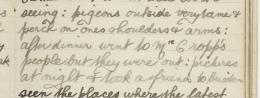 seeing: pigeons outside very tame &
perch on ones shoulders & arms:
after dinner went to Mrs Cropp's
people but they were out: pictures
at night & took a friend to
seen the places where the latest